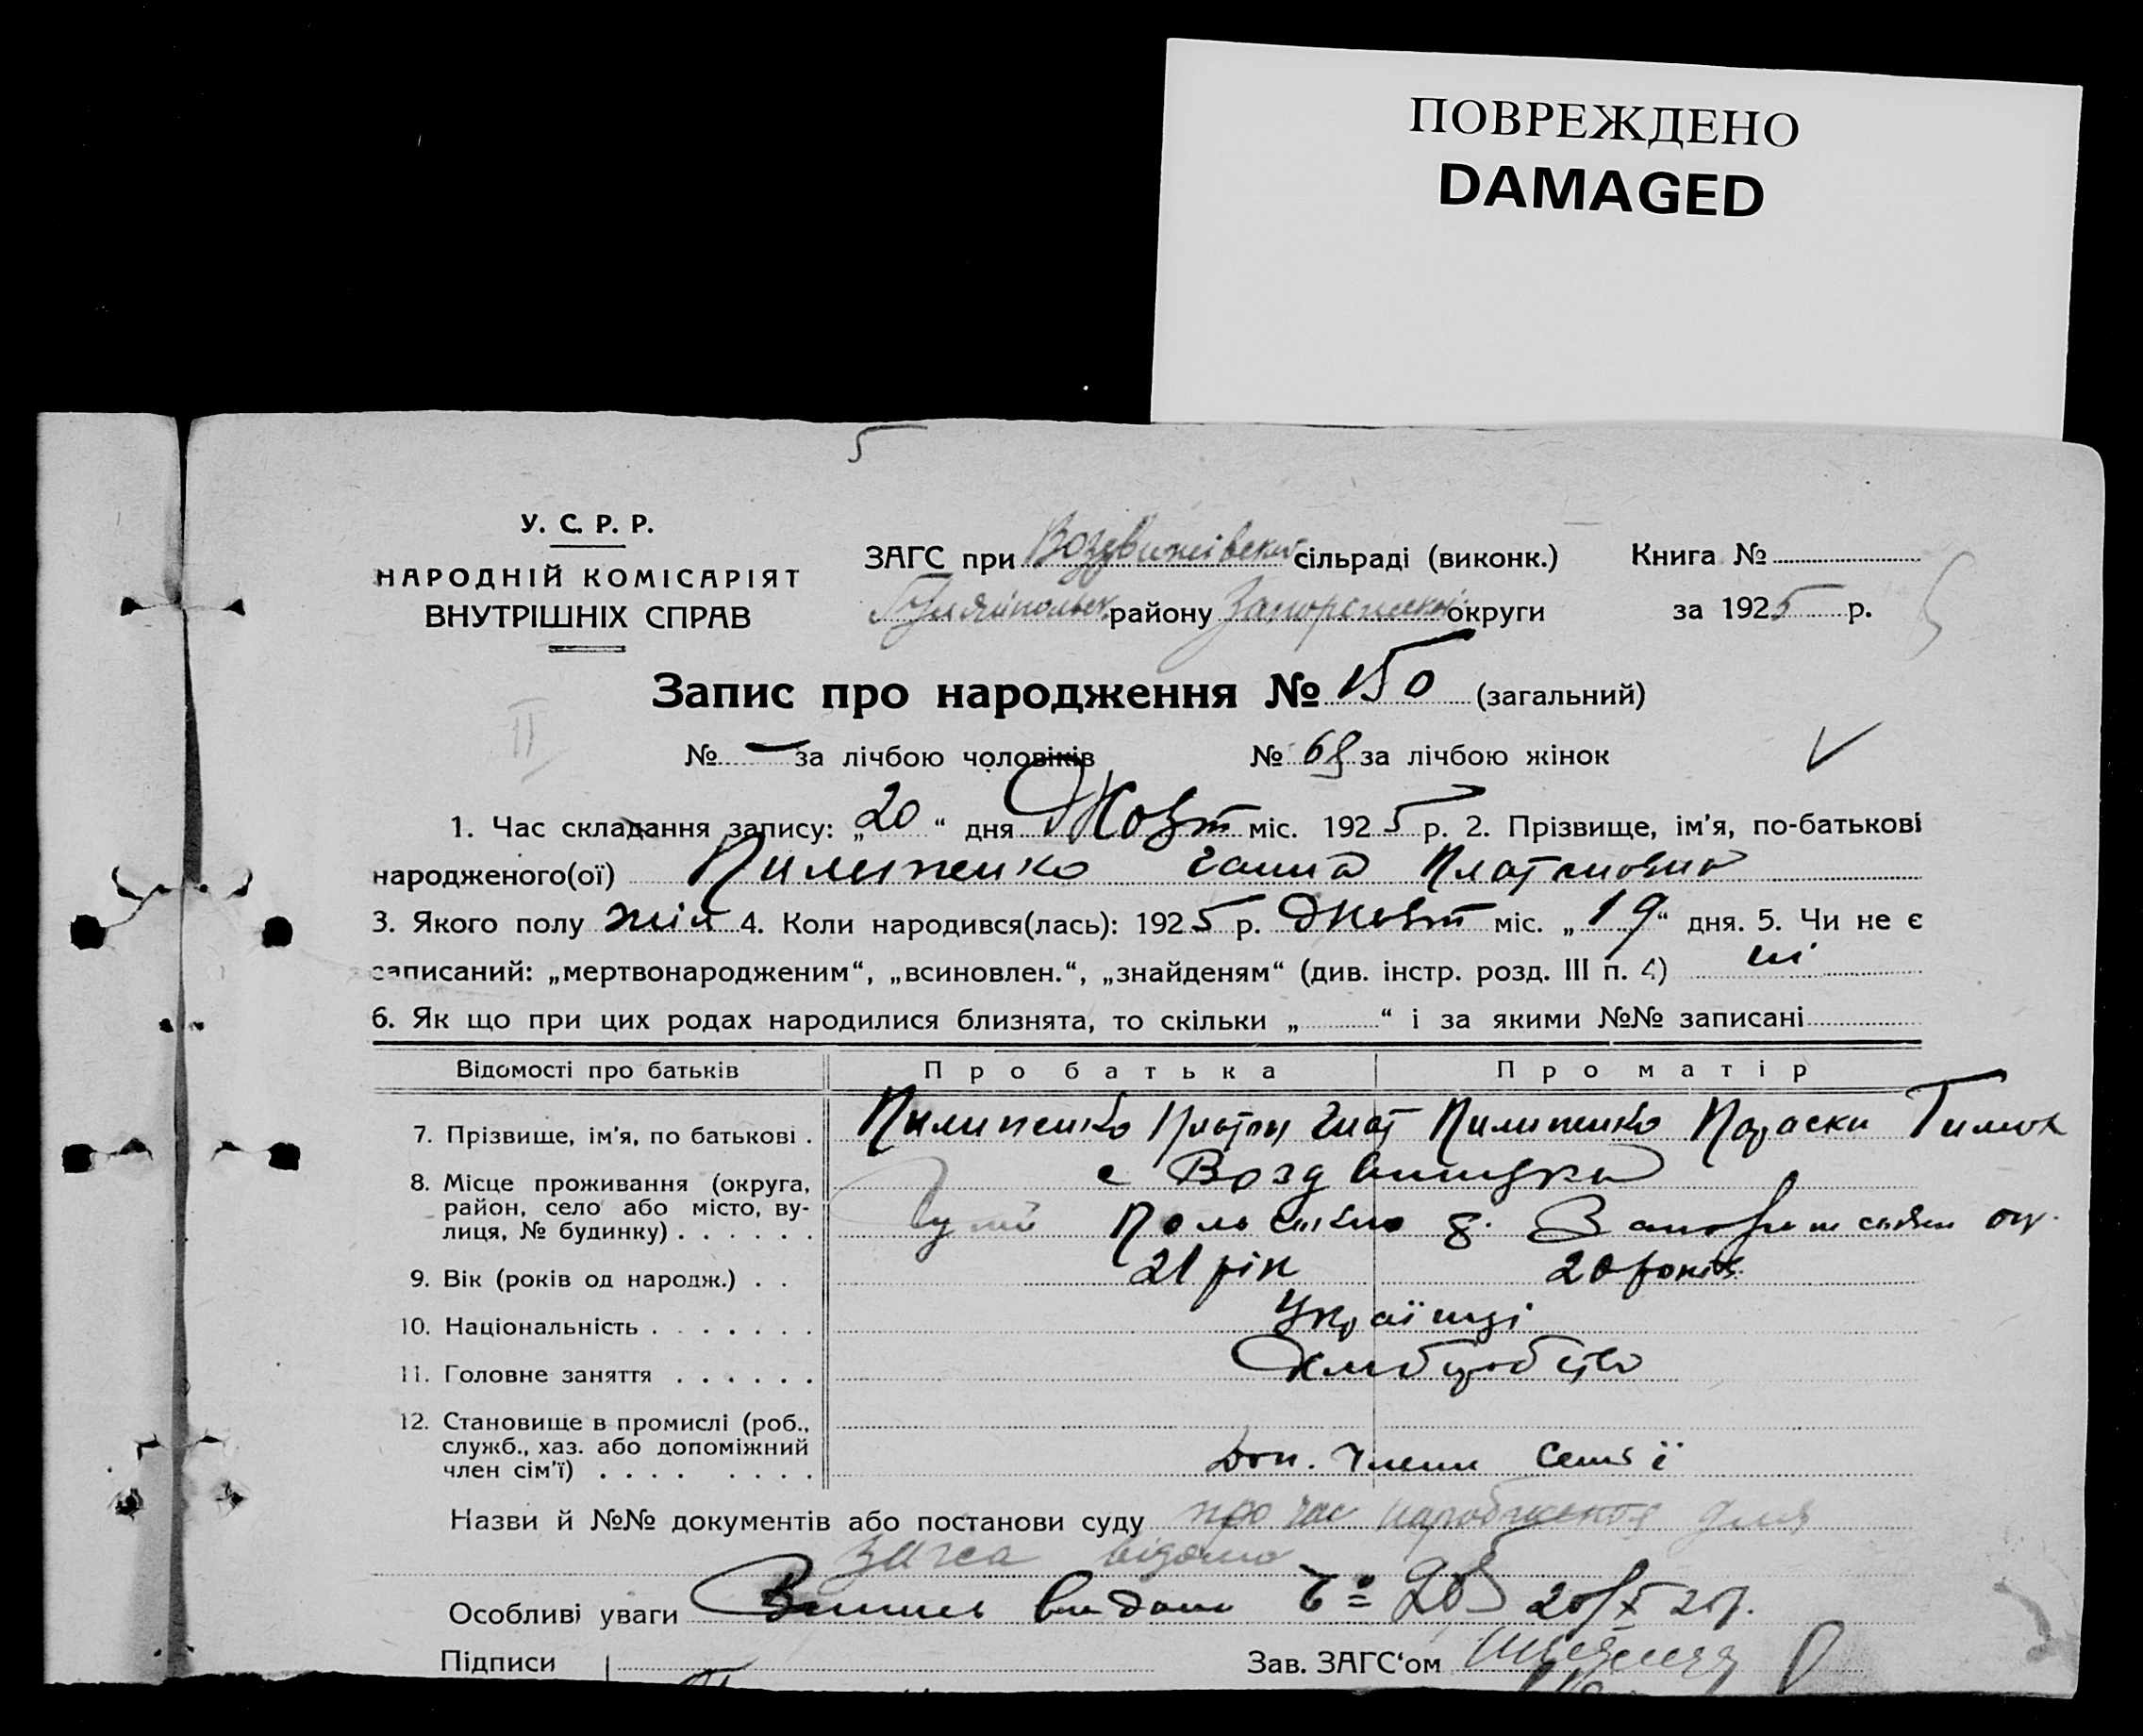 ПОВРЕЖДЕНО
DAMAGED
5
У. С. Р. Р.
НАРОДНІЙ КОМІСАРІЯТ
ВНУТРІШНІХ СПРАВ
ЗАГС при Воздвижівськ сільраді (виконк.) Книга №
Гуляйпольськ району Запорізької округи за 1925 р.
Запис про народження № 150 (загальний)
II
№ — за лічбою чоловіків № 68 за лічбою жінок
1. Час складання запису: „20“ дня Жовт міс. 1925 р. 2. Прізвище, ім'я, по-батькові
народженого(ої) Пилипенко Ганна Платоновна
3. Якого полу жін 4. Коли народився(лась): 1925 р. Жовт міс. „19“ дня. 5. Чи не є
записаний: „мертвонародженим“, „всиновлен.“, „знайденям“ (див. інстр. розд. III п. 4) ні
6. Як що при цих родах народилися близнята, то скільки „ “ і за якими №№ записані
Відомості про батьків Про батька Про матір
7. Прізвище, ім'я, по батькові . Пилипенко Платон Гнат Пилипенко Параска Тимох
8. Місце проживання (округа, с Воздвижувка
район, село або місто, ву-
лиця, № будинку) . . . . . . Гуляй Польського р. Запоріжської окр.
9. Вік (років од народж.) . . 21 рік 20 років
10. Національність . . . . . . . Українці
11. Головне заняття . . . . . . Хлібробство
12. Становище в промислі (роб.,
служб., хаз. або допоміжний
член сім'ї) . . . . . . . . Доп. члени семьї
Назви й №№ документів або постанови суду про час народження для
загса відомо
Особливі уваги Випись видано № 205 20/X 25р.
Підписи Зав. ЗАГС'ом